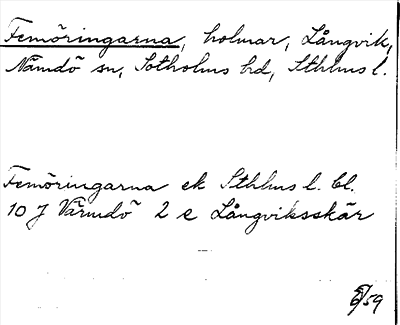 Femöringarna, holmar, Långvik,
Nämdö sn, Sotholms hd, Sthlms l.
Femöringarna ek Sthlms l. bl.
10 J Värmdö 2 e Långviksskär
/59